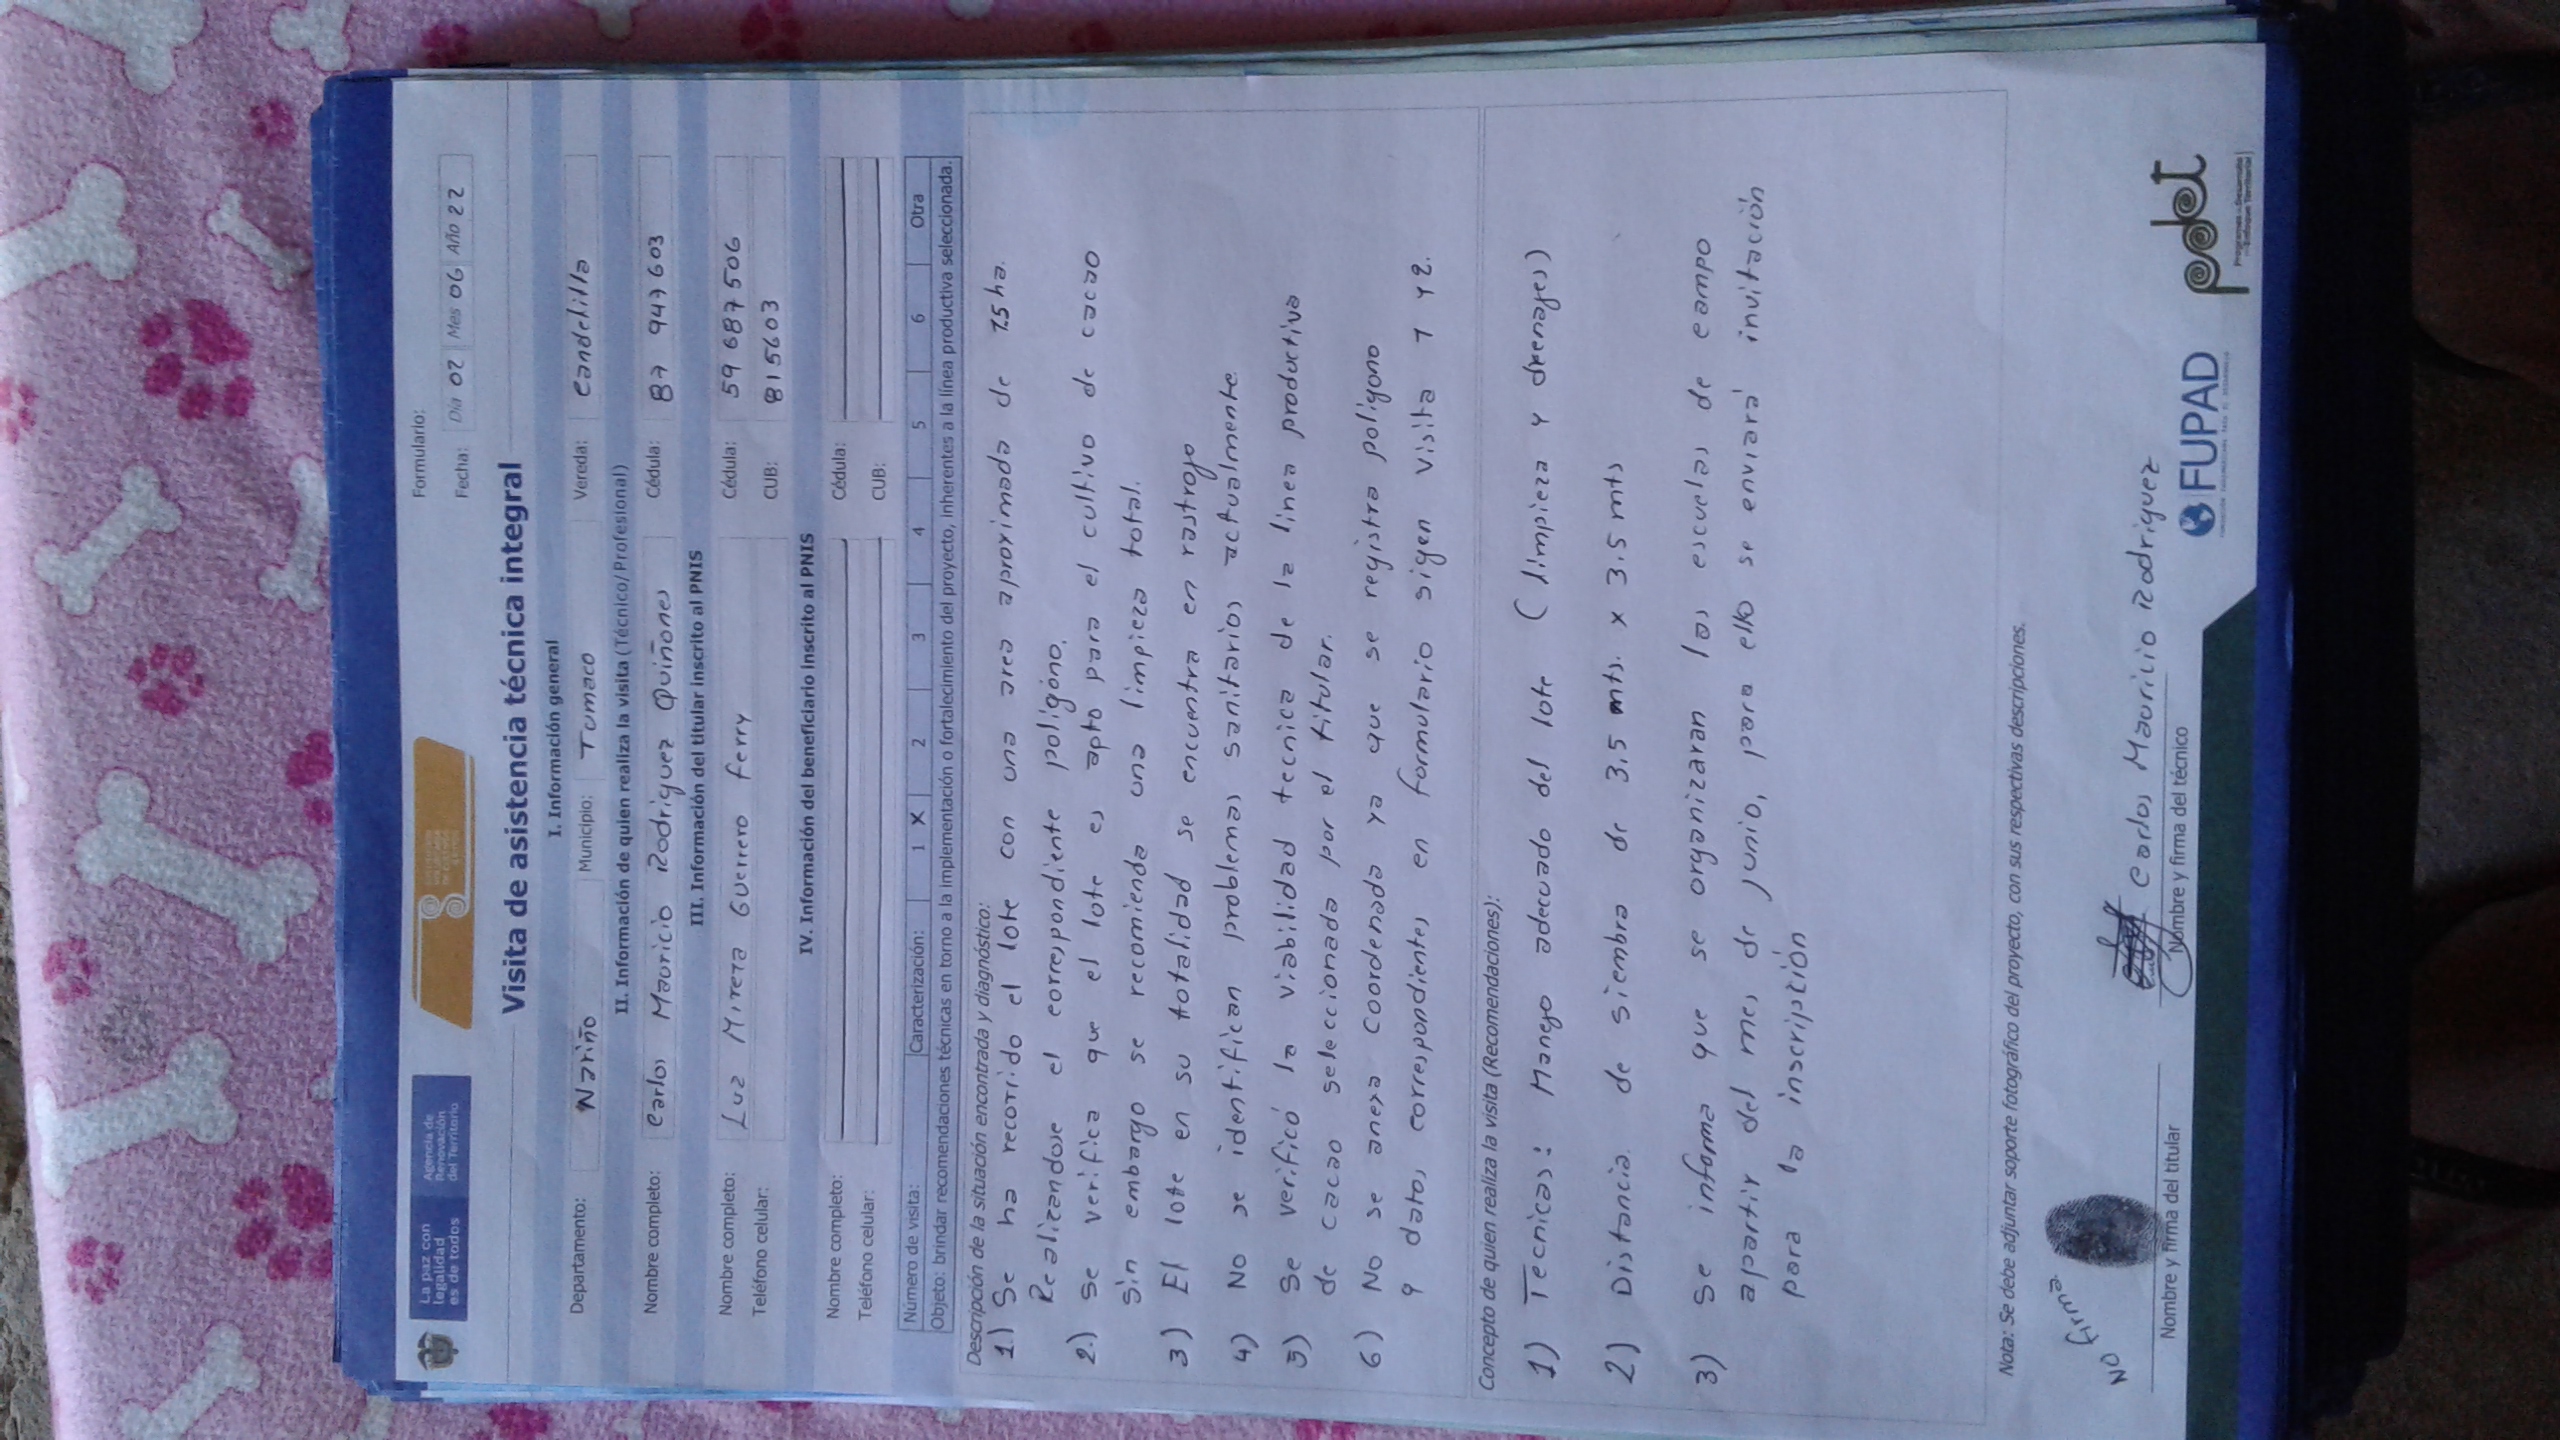 La paz con
legalidad
es de todos
Agencia de
Renovación
del Territorio
Formulario:
Fecha: Día 02 Mes 06 Año 22
Visita de asistencia técnica integral
I. Información general
Departamento: Nariño Municipio: Tumaco Vereda: Candelilla
II. Información de quien realiza la visita (Técnico/Profesional)
Nombre completo: Carlos Mauricio Rodriguez Quiñones Cédula: 87 947603
III. Información del titular inscrito al PNIS
Nombre completo: Luz Mireya Guerrero Ferry Cédula: 59 687 506
Teléfono celular: CUB: 815603
IV. Información del beneficiario inscrito al PNIS
Nombre completo: Cédula:
Teléfono celular: CUB:
Número de visita: Caracterización: 1 X 2 3 4 5 6 Otra
Objeto: brindar recomendaciones técnicas en torno a la implementación o fortalecimiento del proyecto, inherentes a la línea productiva seleccionada.
Descripción de la situación encontrada y diagnóstico:
1.) Se ha recorrido el lote con una area aproximada de 1.5 ha.
Realizandose el correspondiente poligono.
2.) Se verifica que el lote es apto para el cultivo de cacao
sin embargo se recomienda una limpieza total.
3) El lote en su totalidad se encuentra en rastrojo
4) No se identifican problemas sanitarios actualmente.
5) Se verificó la viabilidad tecnica de la linea productiva
de cacao seleccionada por el titular.
6) No se anexa coordenada ya que se registra poligono
y datos correspondientes en formulario sigen visita 1 y 2.
Concepto de quien realiza la visita (Recomendaciones):
1) Tecnicas: Manejo adecuado del lote (limpieza y drenajes)
2) Distancia de siembra de 3.5 mts. x 3.5 mts
3) Se informa que se organizaran las escuelas de campo
apartir del mes de junio, para ello se enviará invitación
para la inscripción
Nota: Se debe adjuntar soporte fotográfico del proyecto, con sus respectivas descripciones.
NO firma
Carlos Mauricio Rodriguez
Nombre y firma del titular
Nombre y firma del técnico
FUPAD
pdet
Programas de Desarrollo
con Enfoque Territorial